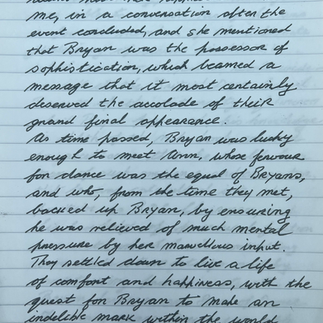 me, in a conversation after the
event concluded, and she mentioned
that Bryan was the possessor of
sophistication, which beamed a
message that it most certainly
deserved the accolade of their
grand final appearance.
As time passed, Bryan was lucky
enough to meet Ann, whose fervour
for dance was the equal of Bryans,
and who, from the time they met,
backed up Bryan, by ensuring
he was relieved of much mental
pressure by her marvellous input.
They settled down to live a life
of comfort and happiness, with the
quest for Bryan to make an
indelible mark within the world